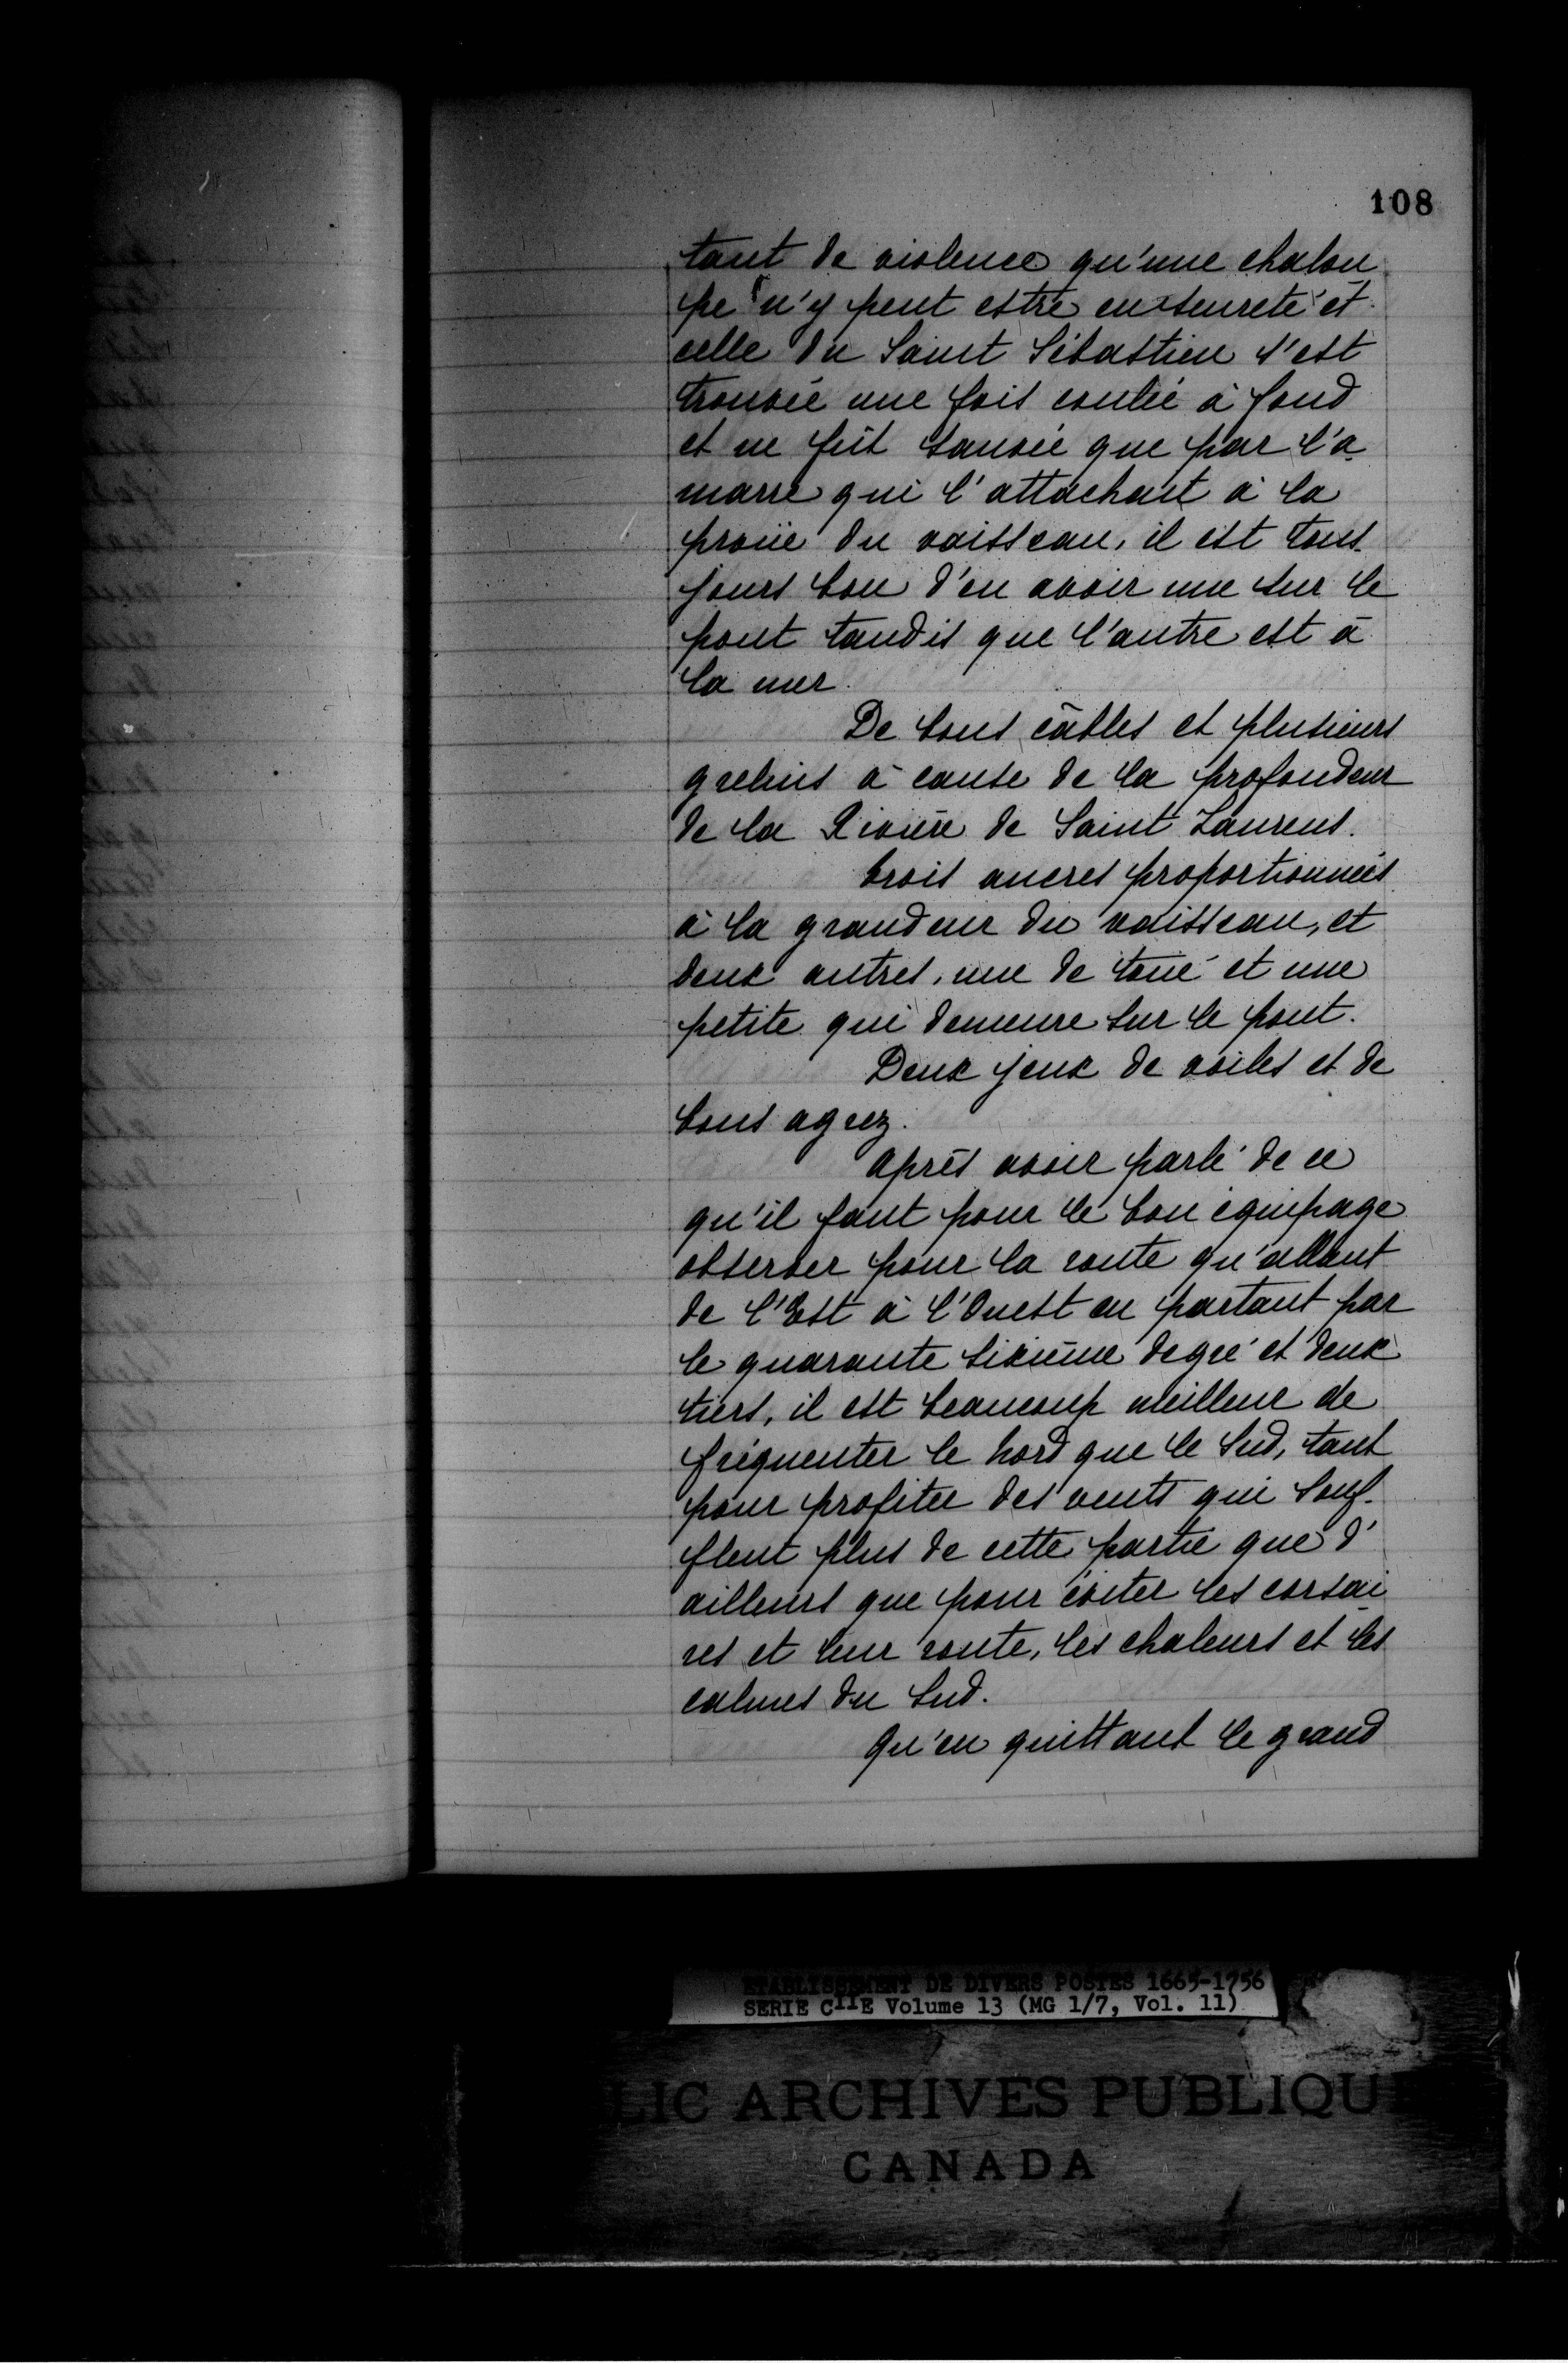 108
tant de violence qu'une chalou
pe n'y peut estre en seureté et
celle du Saint Sébastien s'est
trouvée une fois coulée à fond
et ne fût sauvée que par l'a
marre qui l'attachait à la
proüe du vaisseau, il est tous
jours bon d'en avoir une sur le
pont tandis que l'autre est à
la mer.
De bons câbles et plusieurs
grelins à cause de la profondeur
de la Rivière de Saint Laurens.
trois ancres proportionnées
à la grandeur du vaisseau, et
deux autres, une de toüe et une
petite qui demeure sur le pont.
Deux jeux de voiles et de
bons agrez.
Après avoir parlé de ce
qu'il faut pour le bon équipage
observer pour la route qu'allant
de l'Est à l'Ouest en partant par
le quarante sixième degré et deux
tiers, il est beaucoup meilleur de
fréquenter le nord que le Sud, tant
pour profiter des vents qui souf-
flent plus de cette partie que d'
ailleurs que pour éviter les corsai
res et leur route, les chaleurs et les
calmes du Sud.
Qu'en quittant le grand
ETABLISSEMENT DE DIVERS POSTES 1665-1756
SERIE CIIE Volume 13 (MG 1/7, Vol. 11)
LIC ARCHIVES PUBLIQU
CANADA